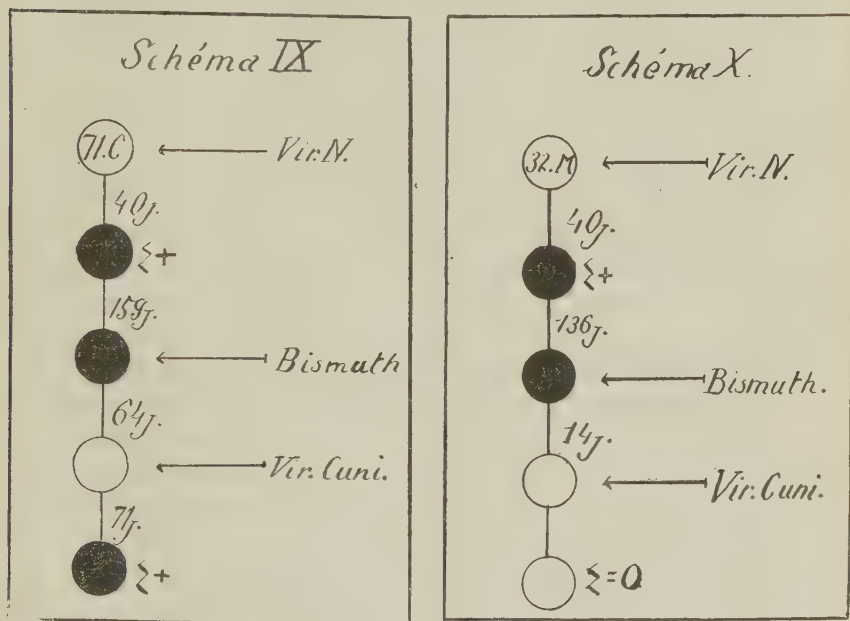 Schéma IX
71.C
Vir.N.
40j.
Σ+
159j.
Bismuth
64j.
Vir.Cuni.
71j.
Σ+
Schéma X.
32.M
Vir.N.
40j.
Σ+
136j.
Bismuth.
14j.
Vir.Cuni.
Σ=0